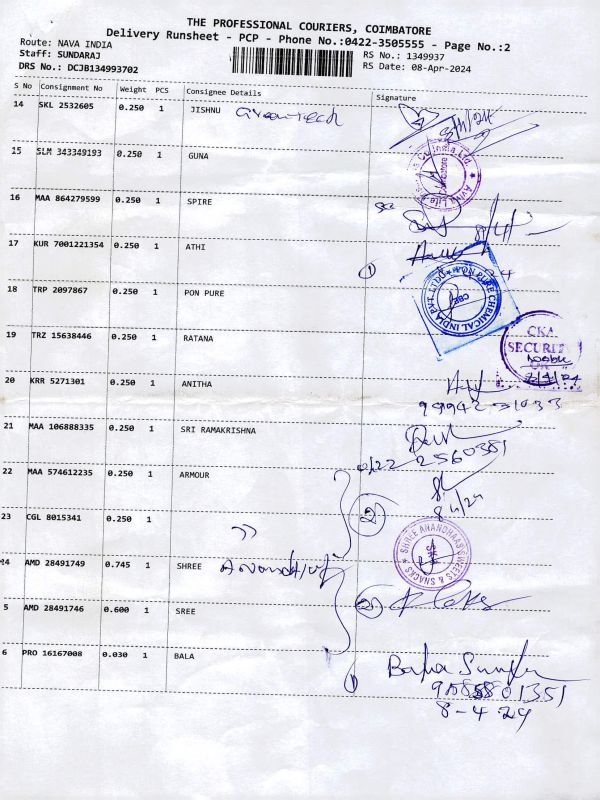 THE PROFESSIONAL COURIERS, COIMBATORE
Delivery Runsheet - PCP - Phone No.:0422-3505555 - Page No.:2
Route: NAVA INDIA
Staff: SUNDARAJ
DRS No.: DCJB134993702
RS No.: 1349937
RS Date: 08-Apr-2024
S No Consignment No Weight PCS Consignee Details Signature
14 SKL 2532605 0.250 1 JISHNU
15 SLM 343349193 0.250 1 GUNA
16 MAA 864279599 0.250 1 SPIRE
17 KUR 7001221354 0.250 1 ATHI
1
18 TRP 2097867 0.250 1 PON PURE
PON PURE CHEMICAL INDIA PVT. LTD.
CBE
19 TRZ 15638446 0.250 1 RATANA
CKA
SECURITY
20 KRR 5271301 0.250 1 ANITHA
21 MAA 106888335 0.250 1 SRI RAMAKRISHNA
0422 2560351
22 MAA 574612235 0.250 1 ARMOUR
2
23 CGL 8015341 0.250 1
SHREE ANANDHAAS SWEETS & SNACKS
24 AMD 28491749 0.745 1 SHREE
5 AMD 28491746 0.600 1 SREE
2
6 PRO 16167008 0.030 1 BALA
1
8-4.24